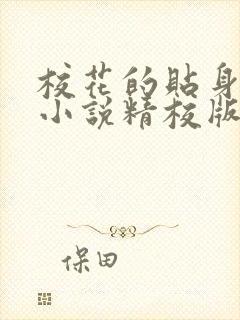 校花的貼身
小說精校版
保田